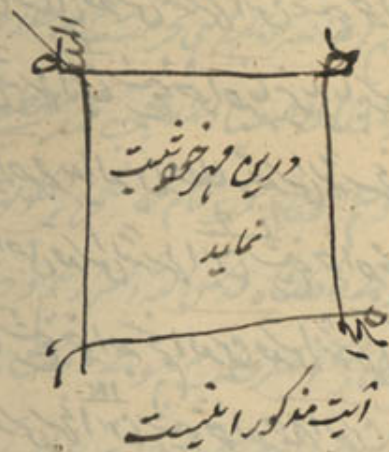 درین مهر خود ثبت
نماید
آیت مذکور اینست